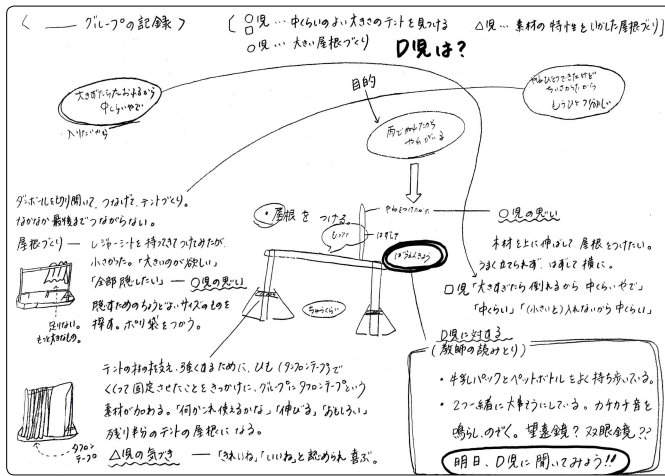 〈 グループの記録 〉
□児… 中くらいのよい大きさのテントを見つける
△児… 素材の特性をいかした屋根づくり
○児… 大きい屋根づくり
D児は?
目的
大きすぎたらたおれるから
中くらいやで
入りたいから
やねひとつできたけど
ちいさかったから
もうひとつ欲しい
雨でぬれたから
やねがいる
ダンボールを切り開いて、つなげて、テントづくり。
なかなか最後までつながらない。
屋根づくり ― レジャーシートを持ってきてつけてみたが、
小さかった。「大きいのが欲しい」
「全部隠したい」― ○児の思い
隠すためのちょうどよいサイズのものを
探す。ポリ袋をつかう。
足りない。
もっと大きなもの。
・屋根を つける。
はずして
ぼうえんきょう
ちゅうくらい
○児の思い
木材を上に伸ばして 屋根をつけたい。
うまく立てられず、はずして 横に。
□児「大きすぎたら倒れるから 中くらいやで」
「中くらい」「(小さいと)入れないから 中くらい」
テントの柱の支え、強くするために、ひも(タフロンテープ)で
くくって固定させたことをきっかけに、グループにタフロンテープという
素材が加わる。「何かこれ使えるかな」「伸びる」「おもしろい」
残り半分のテントの屋根になる。
タフロン
テープ
△児の気づき ― 「きれいね」「いいね」と認められ 喜ぶ。
D児に対する
(教師の読みとり)
・牛乳パックとペットボトルをよく持ち歩いている。
・2つ一緒に大事そうにしている。カチカチ音を
鳴らし、のぞく。望遠鏡? 双眼鏡??
明日、D児に聞いてみよう!!